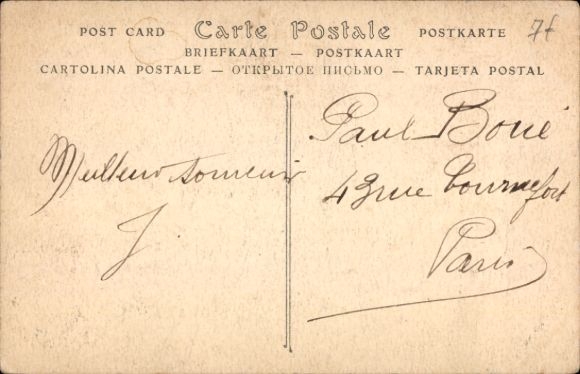 POST CARD Carte Postale POSTKARTE
7f
BRIEFKAART — POSTKAART
CARTOLINA POSTALE — ОТКРЫТОЕ ПИСЬМО — TARJETA POSTAL
Meilleur souvenir
J
Paul Boué
43 rue Tournefort
Paris